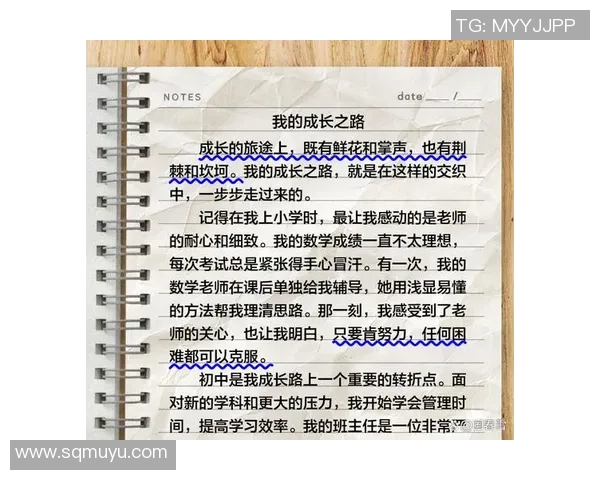 TG: MYYJJPP
NOTES
date ____ /____
我的成长之路
成长的旅途上，既有鲜花和掌声，也有荆
棘和坎坷。我的成长之路，就是在这样的交织
中，一步步走过来的。
记得在我上小学时，最让我感动的是老师
的耐心和细致。我的数学成绩一直不太理想，
每次考试总是紧张得手心冒汗。有一次，我的
数学老师在课后单独给我辅导，她用浅显易懂
的方法帮我理清思路。那一刻，我感受到了老
师的关心，也让我明白，只要肯努力，任何困
难都可以克服。
初中是我成长路上一个重要的转折点。面
对新的学科和更大的压力，我开始学会管理时
间，提高学习效率。我的班主任是一位非常
www.sqmuyu.com